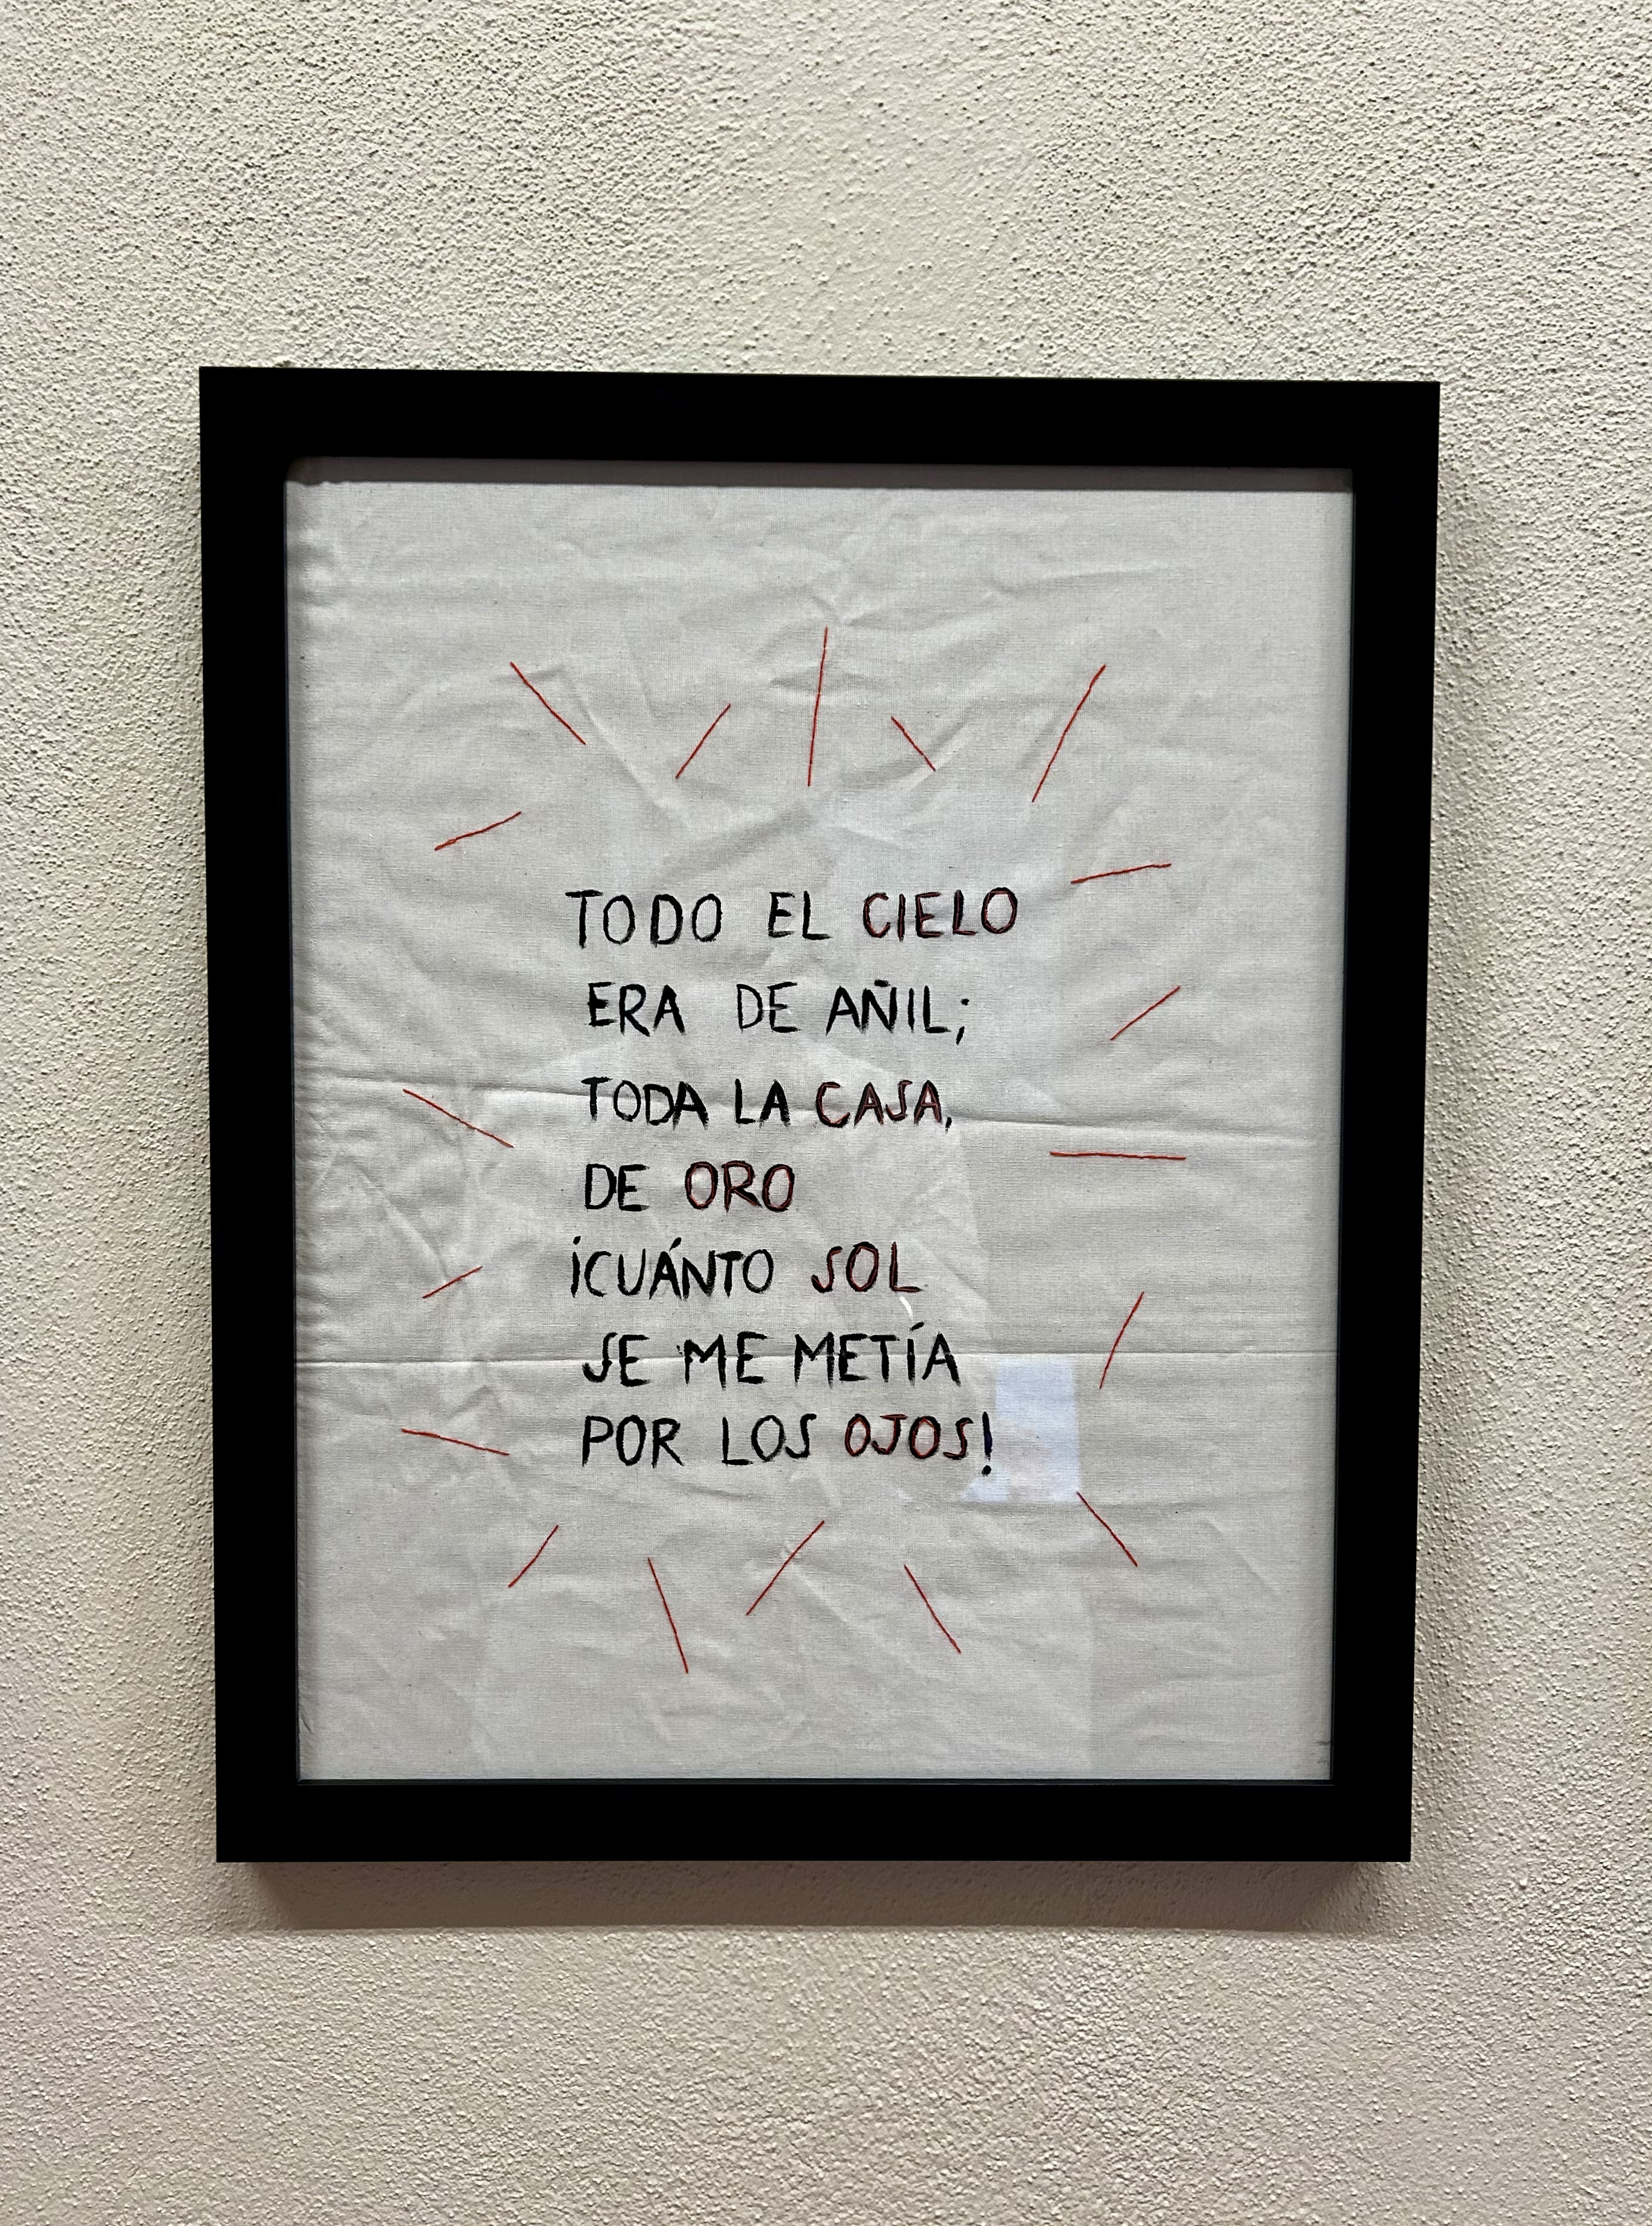 TODO EL CIELO
ERA DE AÑIL;
TODA LA CASA,
DE ORO
¡CUÁNTO SOL
SE ME METÍA
POR LOS OJOS!